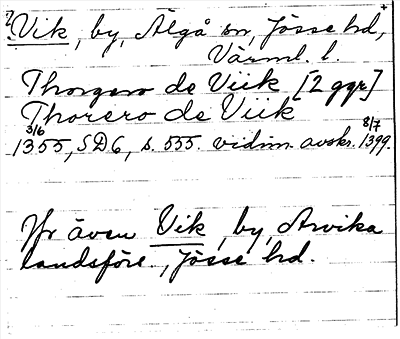 ? Vik, by, Älgå sn, Jösse hd, +
Värml. l.
Thorgero de Viik [2 ggr]
Thorero de Viik
3/6 1355, SD6, s. 555. vidim. avskr. 8/7 1399.
Jfr även Vik, by, Arvika
landsförs., Jösse hd.